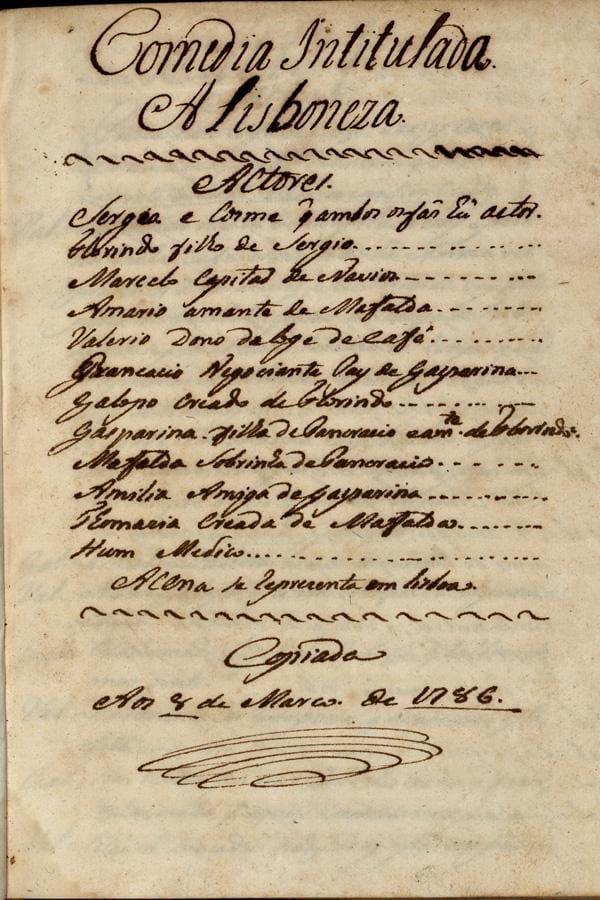 Comedia Intitulada.
A Lisboneza.
Actores.
Sergio e Cosme q̃ ambos os fás hũ actor.
Florindo filho de Sergio
Marcelo Capitaõ de Navios
Amario amante de Mafalda
Valerio Dono da loge de Café
Pancracio Negociante Pay de Gasparina
Galopo Creado de Florindo
Gasparina filha de Pancracio e am.te de Florindo.
Mafalda Sobrinha de Pancracio
Amilia Amiga de Gasparina
Thomazia Creada de Mafalda
Hum Medico
A Cena se Representa em Lisboa.
Copiada
Aos 8 de Março de 1786.